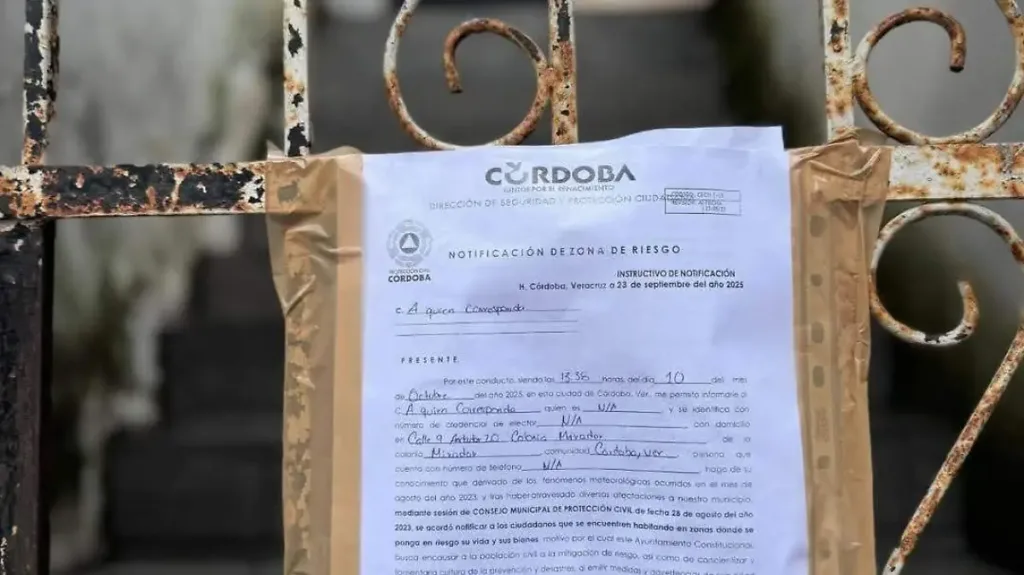 CÓRDOBA
JUNTOS POR EL RENACIMIENTO
DIRECCIÓN DE SEGURIDAD Y PROTECCIÓN CIUDADANA
PROTECCIÓN CIVIL
CÓRDOBA
NOTIFICACIÓN DE ZONA DE RIESGO
INSTRUCTIVO DE NOTIFICACIÓN
H. Córdoba, Veracruz a 23 de septiembre del año 2025
C. A quien Corresponda
PRESENTE
Por este conducto, siendo las horas del día 10 del mes
de Octubre del año 2025, en esta ciudad de Córdoba, Ver., me permito informarle al
C. A quien Corresponda quien es N/A y se identifica con
número de credencial de elector N/A con domicilio
en Calle 9 20 Colonia Mirador de la
colonia Mirador comunidad Córdoba, Ver persona que
cuenta con número de teléfono N/A hago de su
conocimiento que derivado de los fenómenos meteorológicos ocurridos en el mes de
agosto del año 2023, y tras haber atravesado diversas afectaciones a nuestro municipio,
mediante sesión de CONSEJO MUNICIPAL DE PROTECCIÓN CIVIL de fecha 28 de agosto del año
2023, se acordó notificar a los ciudadanos que se encuentren habitando en zonas donde se
ponga en riesgo su vida y sus bienes motivo por el cual este Ayuntamiento Constitucional
busca encausar a la población civil a la mitigación de riesgo, así como de concientizar y
fomentar la cultura de la prevención y desastres, al emitir medidas y